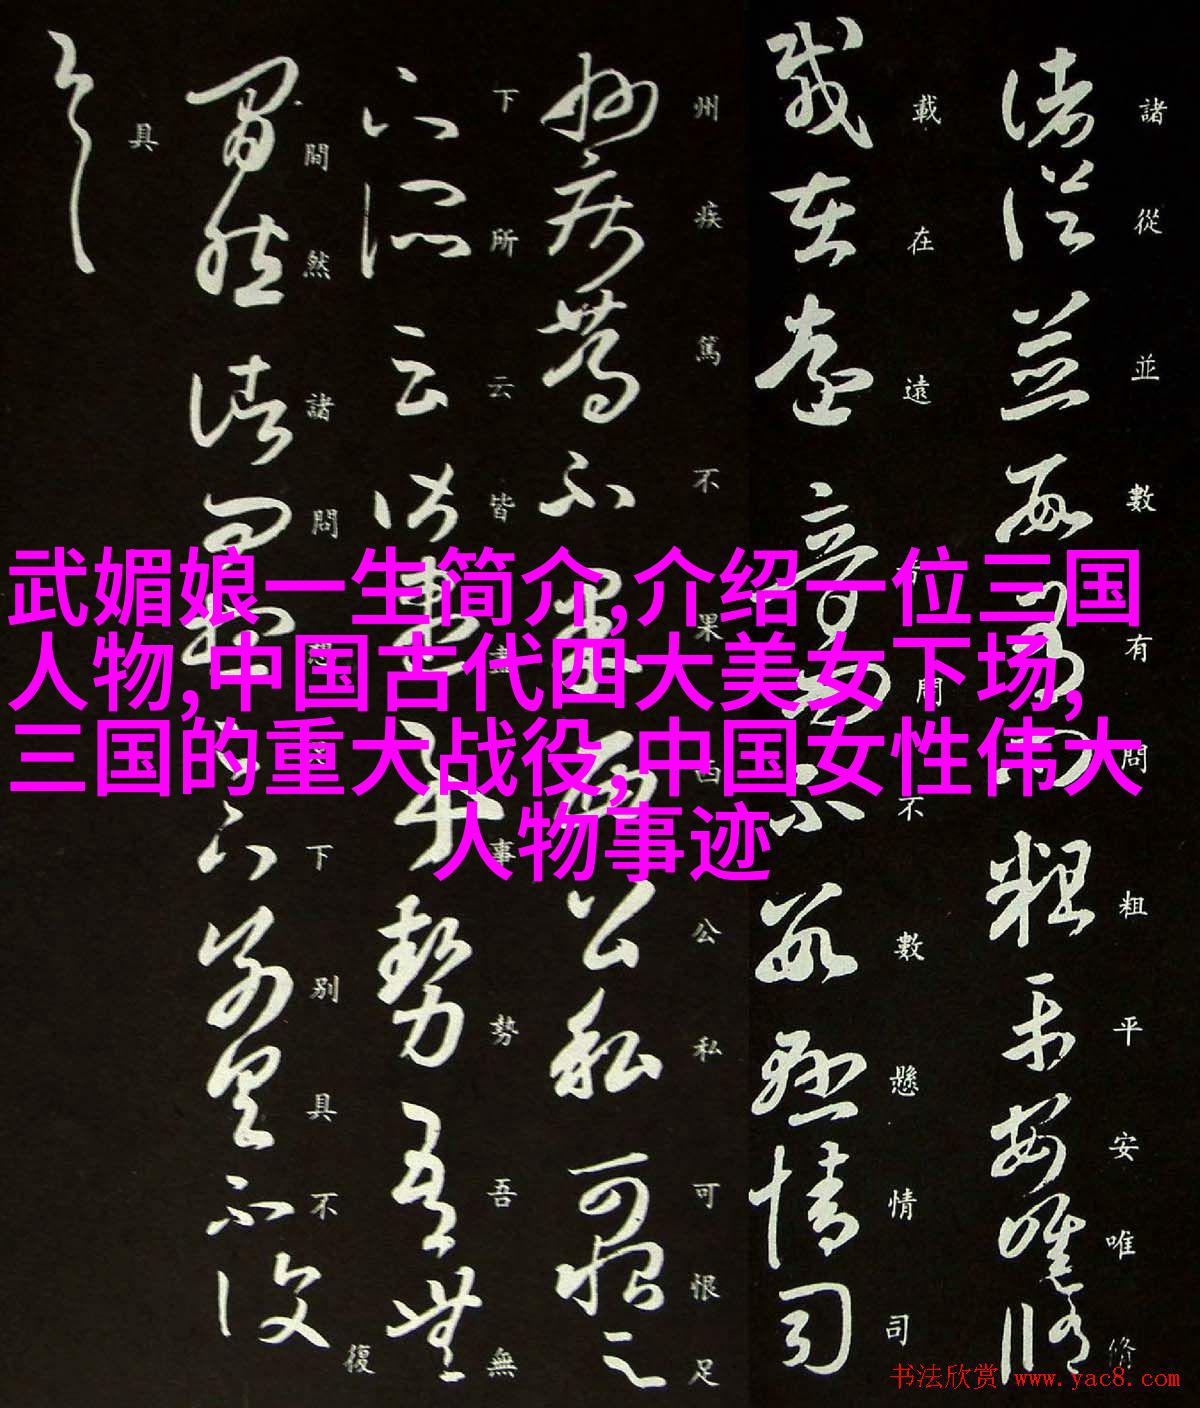 諸從並數有問粗平安唯修
載在遠音問不數懸情司
州疾篤不果西公私可恨足
下所云皆盡事勢吾無
間然諸問想下別具不復
具
武媚娘一生简介,介绍一位三国
人物,中国古代四大美女下场,
三国的重大战役,中国女性伟大
人物事迹
书法欣赏 www.yac8.com